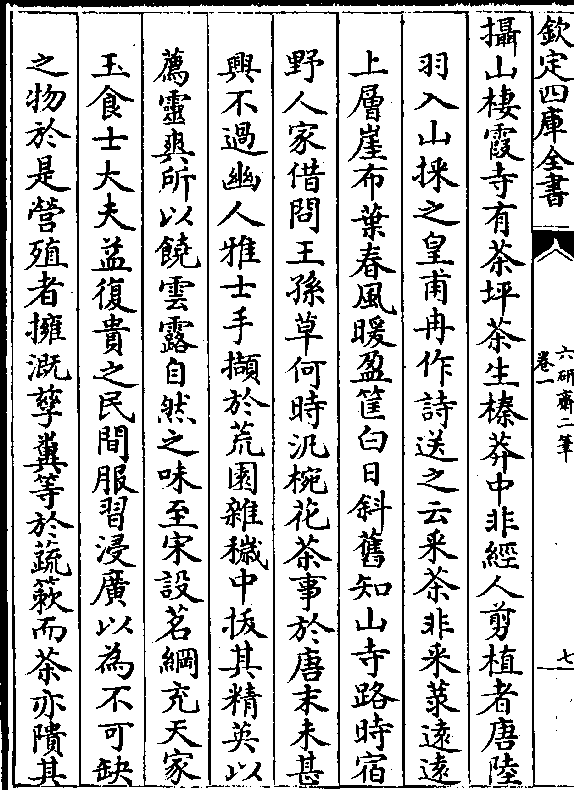 欽定四庫全書
六研齋二筆
卷一
七
攝山棲霞寺有茶坪茶生榛莽中非經人剪植者唐陸
羽入山採之皇甫冉作詩送之云采茶非采菉遠遠
上層崖布葉春風暖盈筐白日斜舊知山寺路時宿
野人家借問王孫草何時汎椀花茶事於唐末未甚
興不過幽人雅士手擷於荒園雜穢中拔其精英以
薦靈爽所以饒雲露自然之味至宋設茗綱充天家
玉食士大夫益復貴之民間服習浸廣以為不可缺
之物於是營殖者擁溉孳糞等於蔬蔌而茶亦隤其